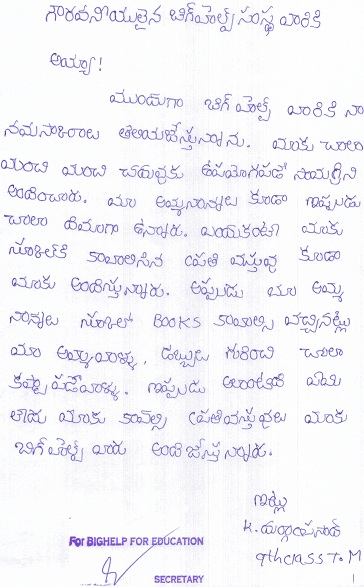 గౌరవనీయులైన బిగ్ హెల్ప్ సంస్థ వారికి
అయ్యా!
ముందుగా బిగ్ హెల్ప్ వారికి నా
నమస్కారాలు తెలియజేస్తున్నాను. మాకు చాలా
మంచి మంచి చదువుకు ఉపయోగపడే సామగ్రిని
అందించారు. మా అమ్మనాన్నలు కూడా ఇప్పుడు
చాలా ధీమాగా ఉన్నారు. ఎందుకంటే మాకు
స్కూల్‌కి కావాలసిన ప్రతి వస్తువు కూడా
మాకు అందిస్తున్నారు. అప్పుడు మా అమ్మ
నాన్నలు స్కూల్ BOOKS కావాల్సి వచ్చినట్లు
మా అమ్మవాళ్ళు, డబ్బులు గురించి చాలా
కష్టపడేవాళ్ళు. ఇప్పుడు అలాంటిది ఏమి
లేదు మాకు కావల్సి ప్రతివస్తువులు మాకు
బిగ్ హెల్ప్ వారు అందజేస్తున్నారు.
ఇట్లు
K. దుర్గాప్రసాద్
9th class T.M
For BIGHELP FOR EDUCATION
SECRETARY